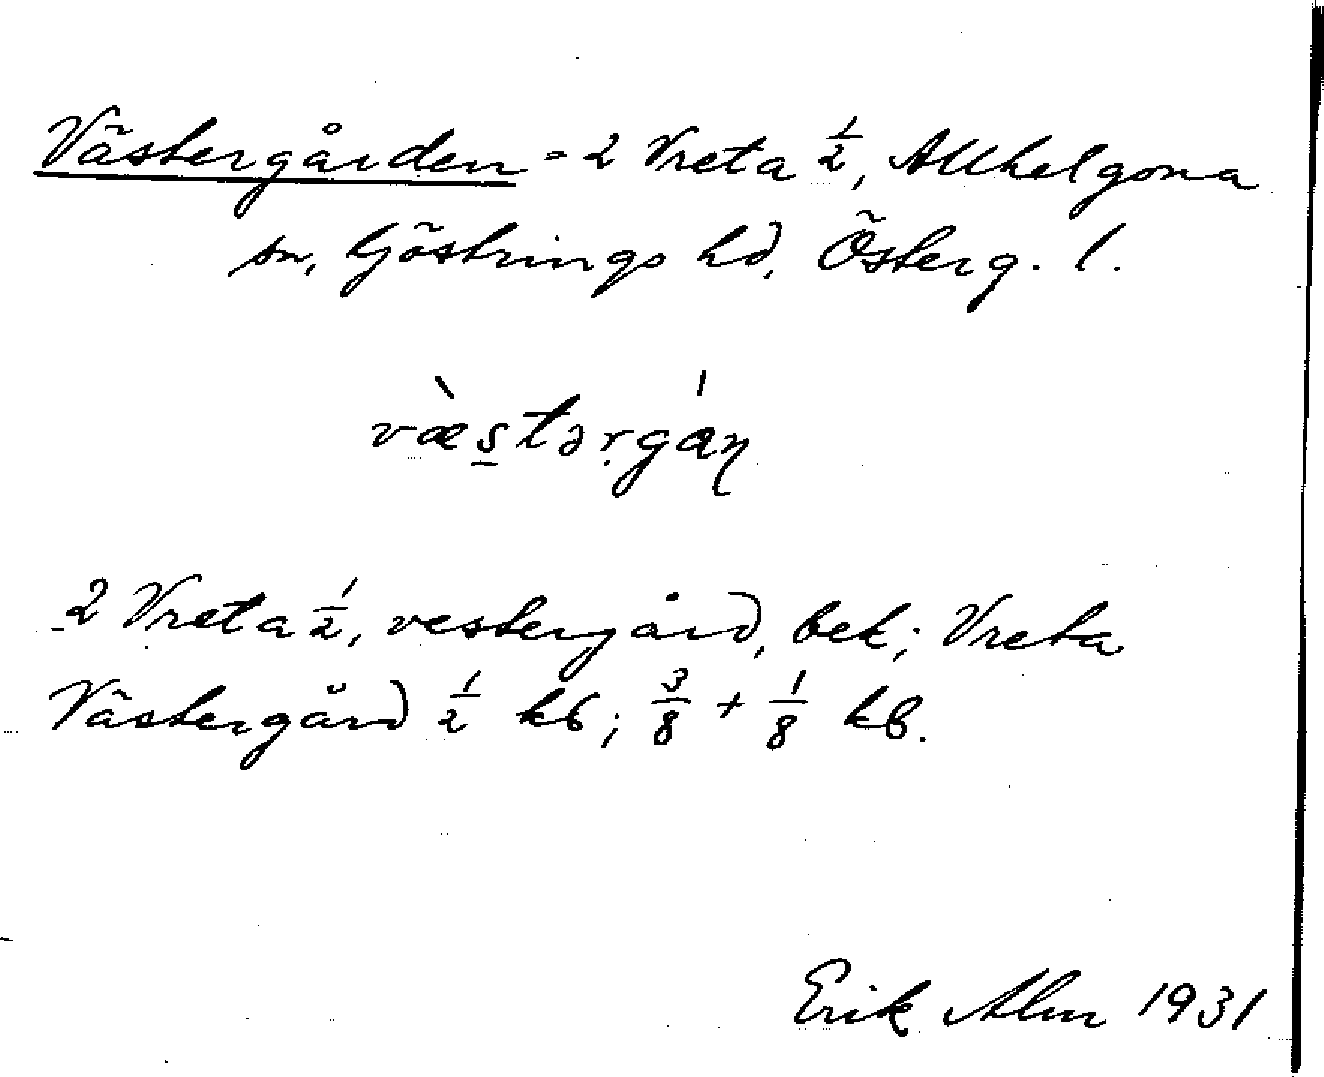 Västergården = 2 Vreta 1/2, Allhelgona
sn, Göstrings hd, Österg. l.
væ̀stərgán
2 Vreta 1/2, vestergård, bek; Vreta
Västergård 1/2 kb; 3/8 + 1/8 kb.
Erik Alm 1931